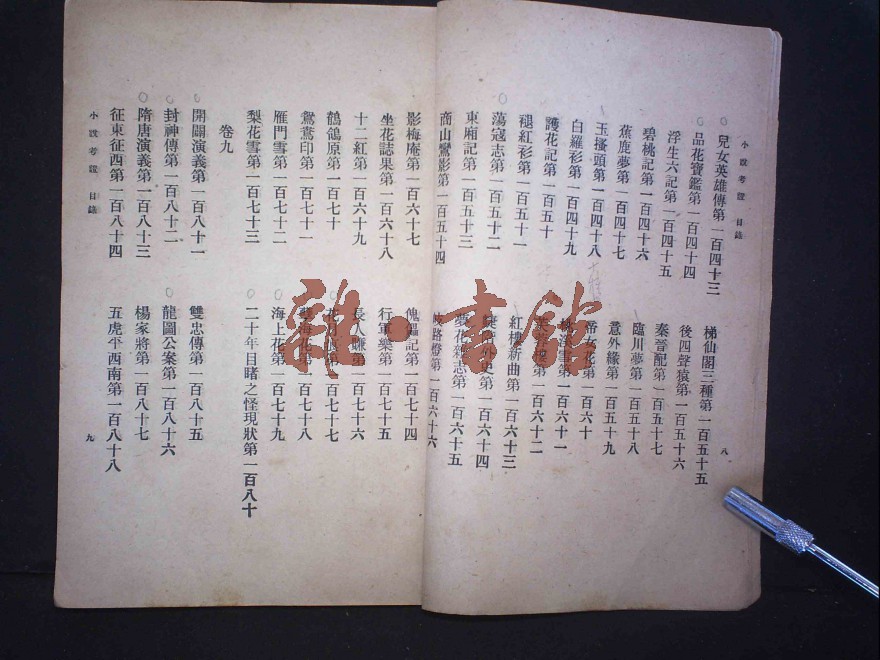 小說考證 目錄
兒女英雄傳第一百四十三
品花寶鑑第一百四十四
浮生六記第一百四十五
碧桃記第一百四十六
蕉鹿夢第一百四十七
玉搔頭第一百四十八
白羅衫第一百四十九
護花記第一百五十
褪紅衫第一百五十一
蕩寇志第一百五十二
東廂記第一百五十三
商山鸞影第一百五十四
梯仙閣三種第一百五十五
後四聲猿第一百五十六
秦晉配第一百五十七
臨川夢第一百五十八
意外緣第一百五十九
帝女花第一百六十
雪第一百六十一
第一百六十二
紅樓新曲第一百六十三
外史第一百六十四
花雜志第一百六十五
歧路燈第一百六十六
八
影梅庵第一百六十七
坐花誌果第一百六十八
十二紅第一百六十九
鶴鴒原第一百七十
鴛鴦印第一百七十一
雁門雪第一百七十二
梨花雪第一百七十三
傀儡記第一百七十四
行軍樂第一百七十五
長人賺第一百七十六
花第一百七十七
海花第一百七十八
海上花第一百七十九
二十年目睹之怪現狀第一百八十
卷九
開闢演義第一百八十一
封神傳第一百八十二
隋唐演義第一百八十三
征東征西第一百八十四
雙忠傳第一百八十五
龍圖公案第一百八十六
楊家將第一百八十七
五虎平西南第一百八十八
小說考證 目錄
九
雜·書館